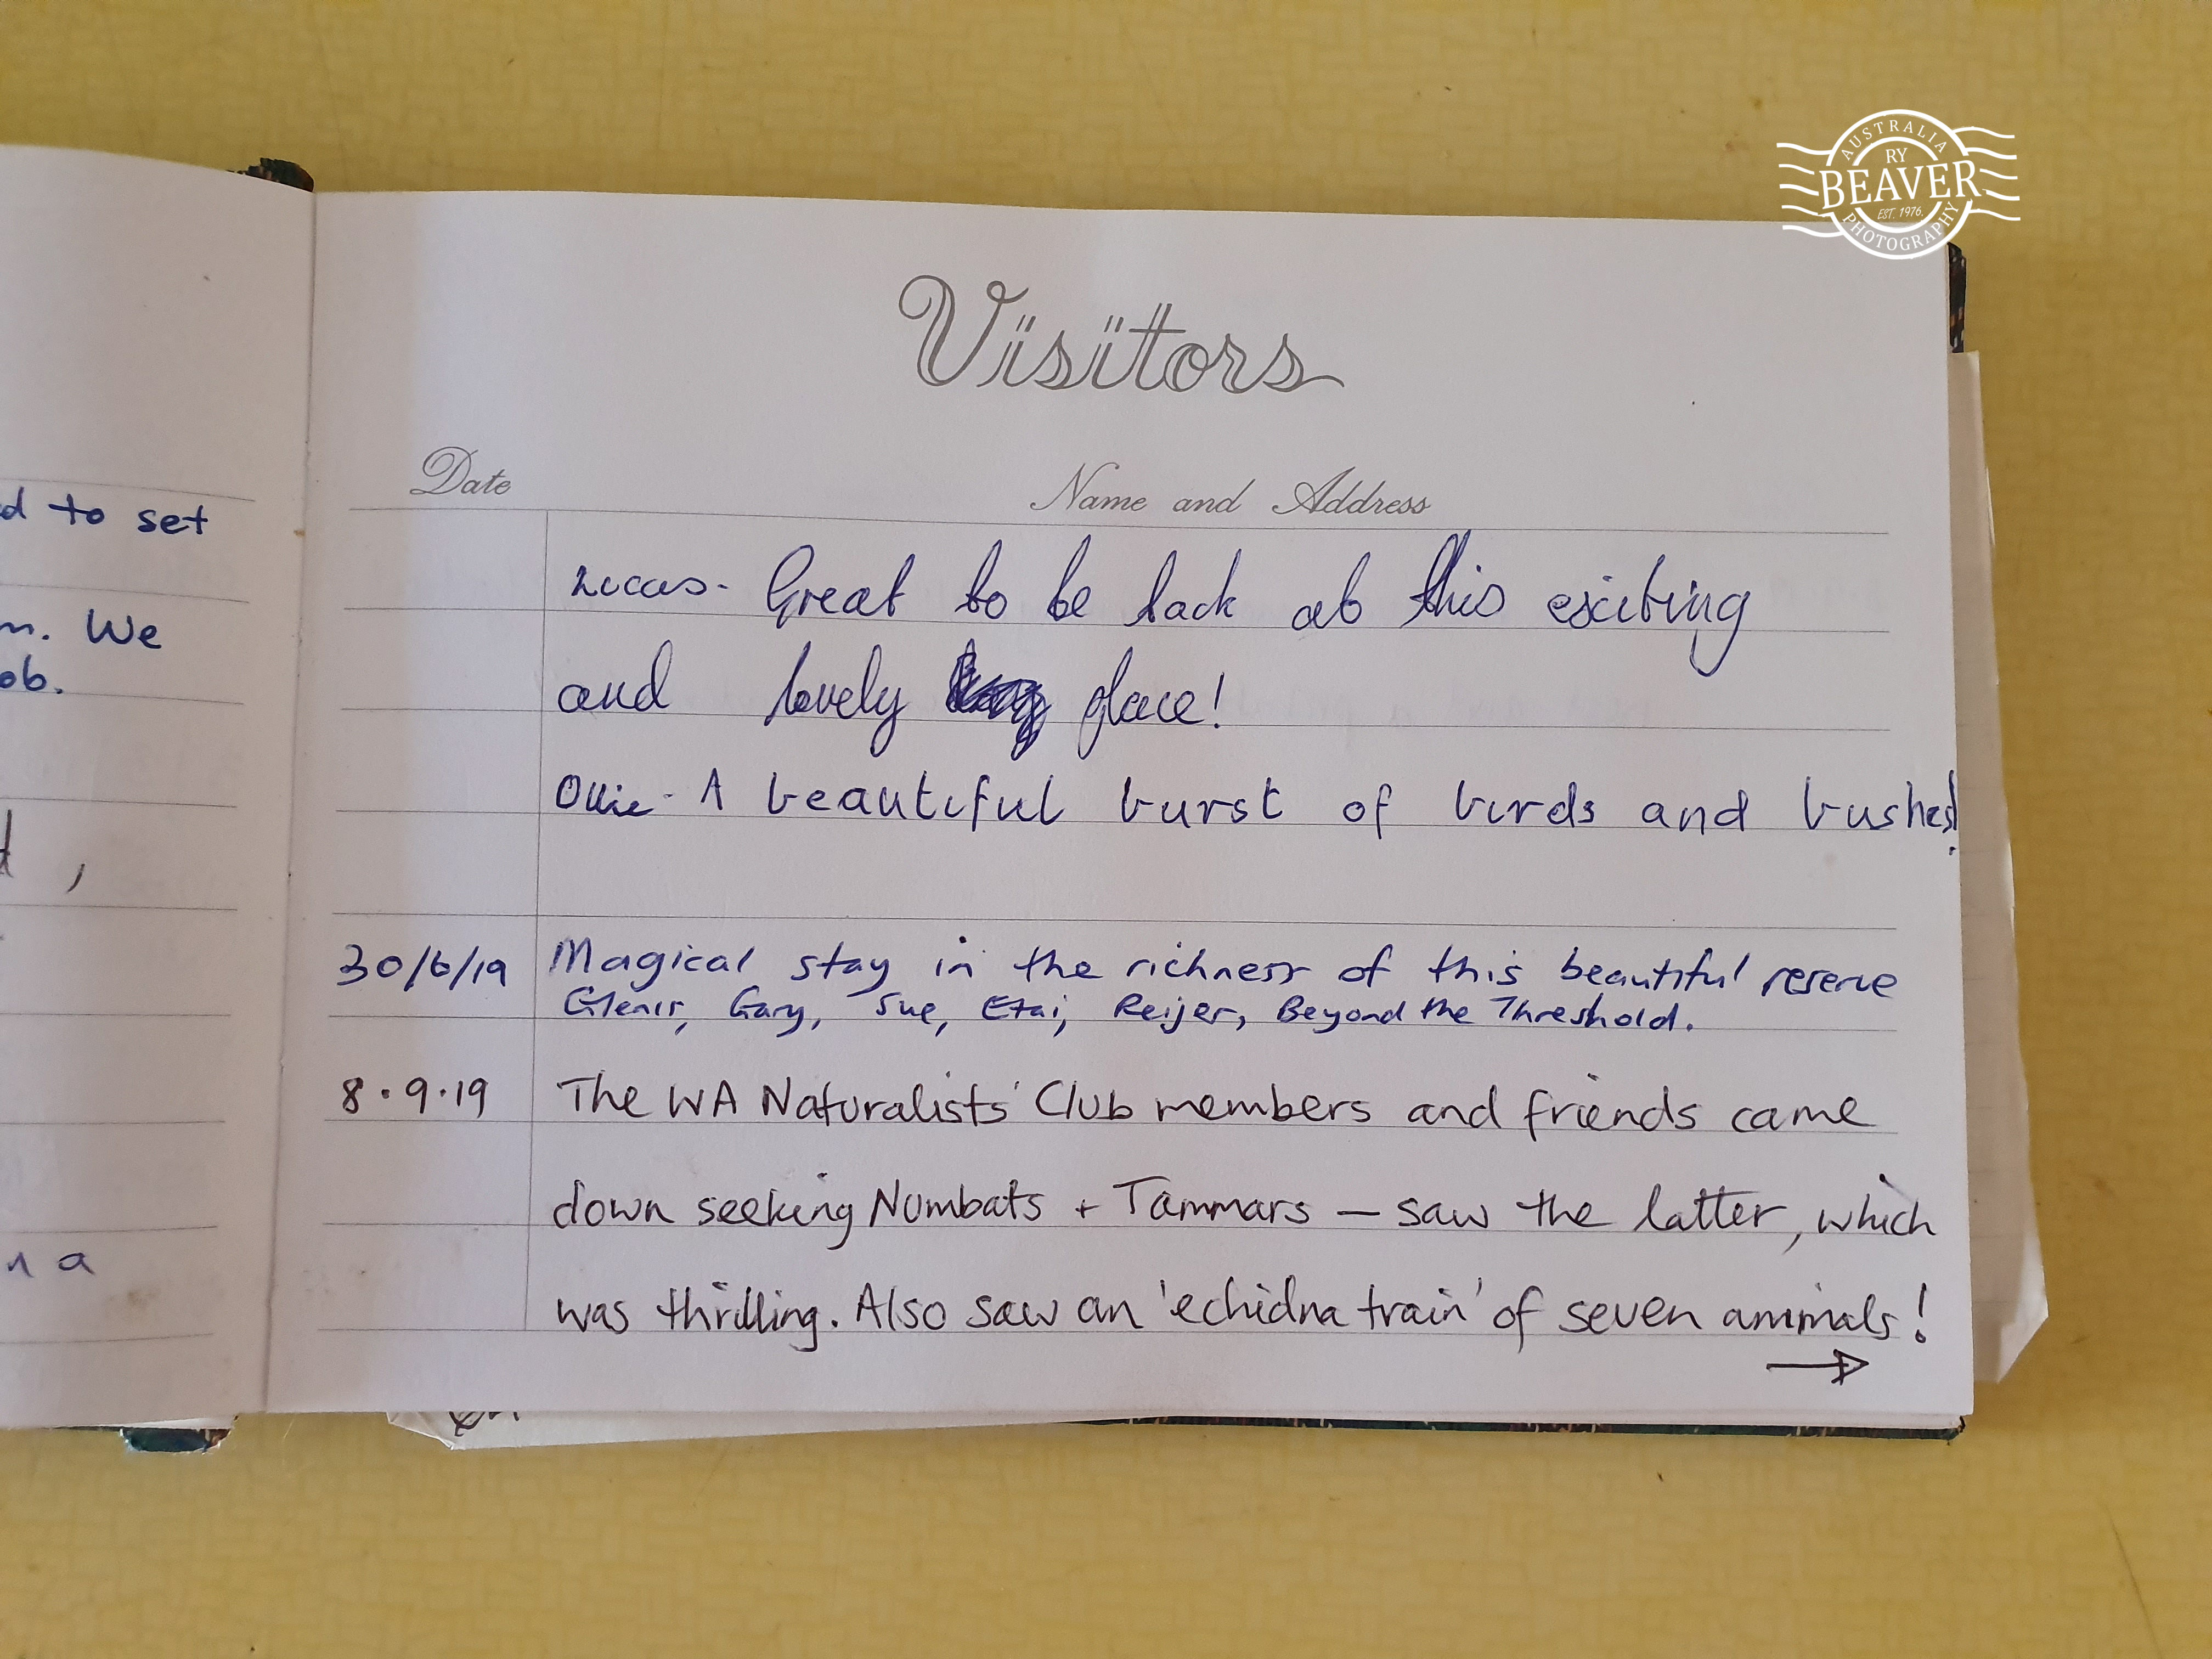 AUSTRALIA
RY
BEAVER
EST. 1976.
PHOTOGRAPHY
Visitors
Date Name and Address
d to set
m. We
ob.
,
n a
Lucas- Great to be back at this exciting
and lovely place!
Ollie- A beautiful burst of birds and bushes!
30/6/19 Magical stay in the richness of this beautiful reserve
Glenis, Gary, Sue, Etai, Reijer, Beyond the Threshold.
8.9.19 The WA Naturalists' Club members and friends came
down seeking Numbats + Tammars — saw the latter, which
was thrilling. Also saw an 'echidna train' of seven animals!
→